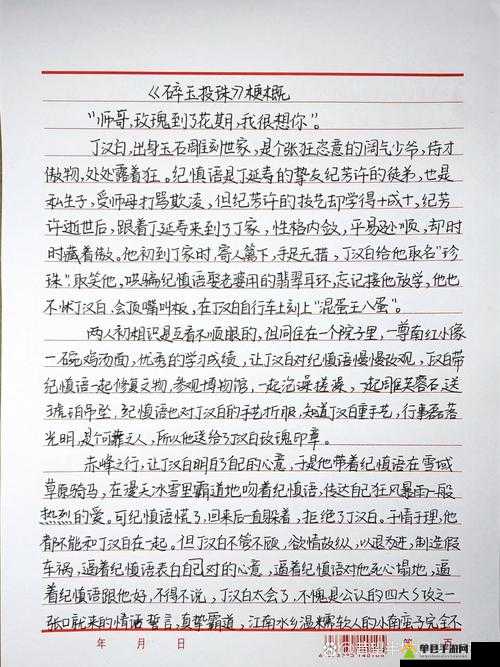 《碎玉投珠》梗概
“师哥,玫瑰到了花期,我很想你”。
丁汉白,出身玉石雕刻世家,是个张狂恣意的阔气少爷,恃才
傲物,处处露着狂。纪慎语是丁延寿的挚友纪芳许的徒弟,也是
私生子,受师母打骂欺凌,但纪芳许的技艺却学得十成十,纪芳
许逝世后,跟着丁延寿来到了丁家,性格内敛,平易处顺,却时
时藏着傲。他初到丁家时,寄人篱下,手足无措,丁汉白给他取名“珍
珠”取笑他,哄骗纪慎语娶老婆用的翡翠耳环,忘记接他放学,他也
不怵丁汉白,会顶嘴叫板,在丁汉白自行车上刻上“混蛋王八蛋”。
两人初相识是互看不顺眼的,但同住在一个院子里,一尊南红小像
一碗鸡汤面,优秀的学习成绩,让丁汉白对纪慎语慢慢改观,丁汉白带
纪慎语一起修复文物,参观博物馆,一起泡澡搓澡,一起雕芙蓉石,送
了琥珀吊坠,纪慎语也对丁汉白的手艺折服,知道丁汉白重手艺,行事磊落
光明,是个可靠之人,所以他送给了丁汉白玫瑰印章。
赤峰之行,让丁汉白明白了自己的心意,于是他带着纪慎语在雪域
草原骑马,在漫天冰雪里霸道地吻着纪慎语,传达自己狂风暴雨一般
热烈的爱。可纪慎语慌了,回来后一直躲着,拒绝了丁汉白。于情于理,他
都不能和丁汉白在一起。但丁汉白不管不顾,欲情故纵,以退为进,制造假
车祸,逼着纪慎语表白自己对的心意,逼着纪慎语对他死心塌地,逼
着纪慎语跟他好,不得不说,丁汉白太会了,不愧是公认的四大攻之一
张口就来的情话誓言,真挚霸道,江南水乡温糯软人的小南蛮子完全不
年 月 日
第 页
单县手游网